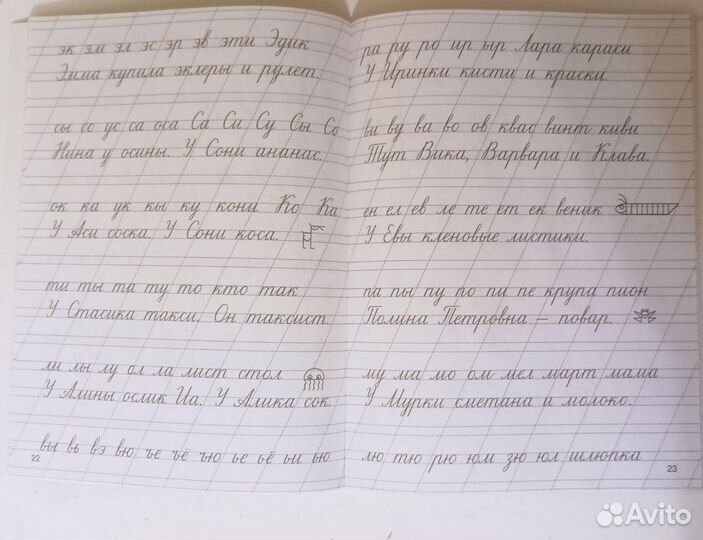 эк эм эл эс эр эв эти Эдик
Эмма купила эклеры и рулет.
сы со ус са оса Са Си Су Сы Со
Нина у осины. У Сони ананас.
ок ка ук кы ку кони Ко Ка
У Аси соска. У Сони коса.
ти ты та ту то кто так
У Стасика такси. Он таксист.
ли лы лу ол ла лист стол
У Алины ослик Иа. У Алика сок.
вы вь вэ вю ъе ъё ъю ье ьё ьи ью
22
ра ру ро ир ыр Лара караси
У Иринки кисти и краски.
ви ву ва во ов квас винт киви
Тут Вика, Варвара и Клава.
ен ел ев ле те ет ек веник
У Евы кленовые листики.
па пы пу по пи пе крупа пион
Полина Петровна – повар.
му ма мо ом мел март мама
У Мурки сметана и молоко.
лю тю рю юм зю юл шлюпка
23
Avito